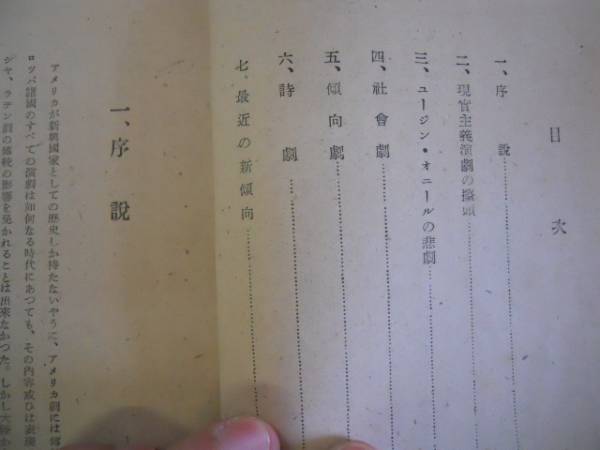 目次
一、序說
二、現実主義演劇の擡頭
三、ユージン・オニールの悲劇
四、社會劇
五、傾向劇
六、詩劇
七、最近の新傾向
一、序說
アメリカが新興國家としての歴史しか持たないやうに、アメリカ劇には
ロッパ諸國のすべての演劇は如何なる時代にあつても、その内容或ひは表現
シヤ、ラテン劇の傳統の影響を免かれることは出来なかつた。しかし